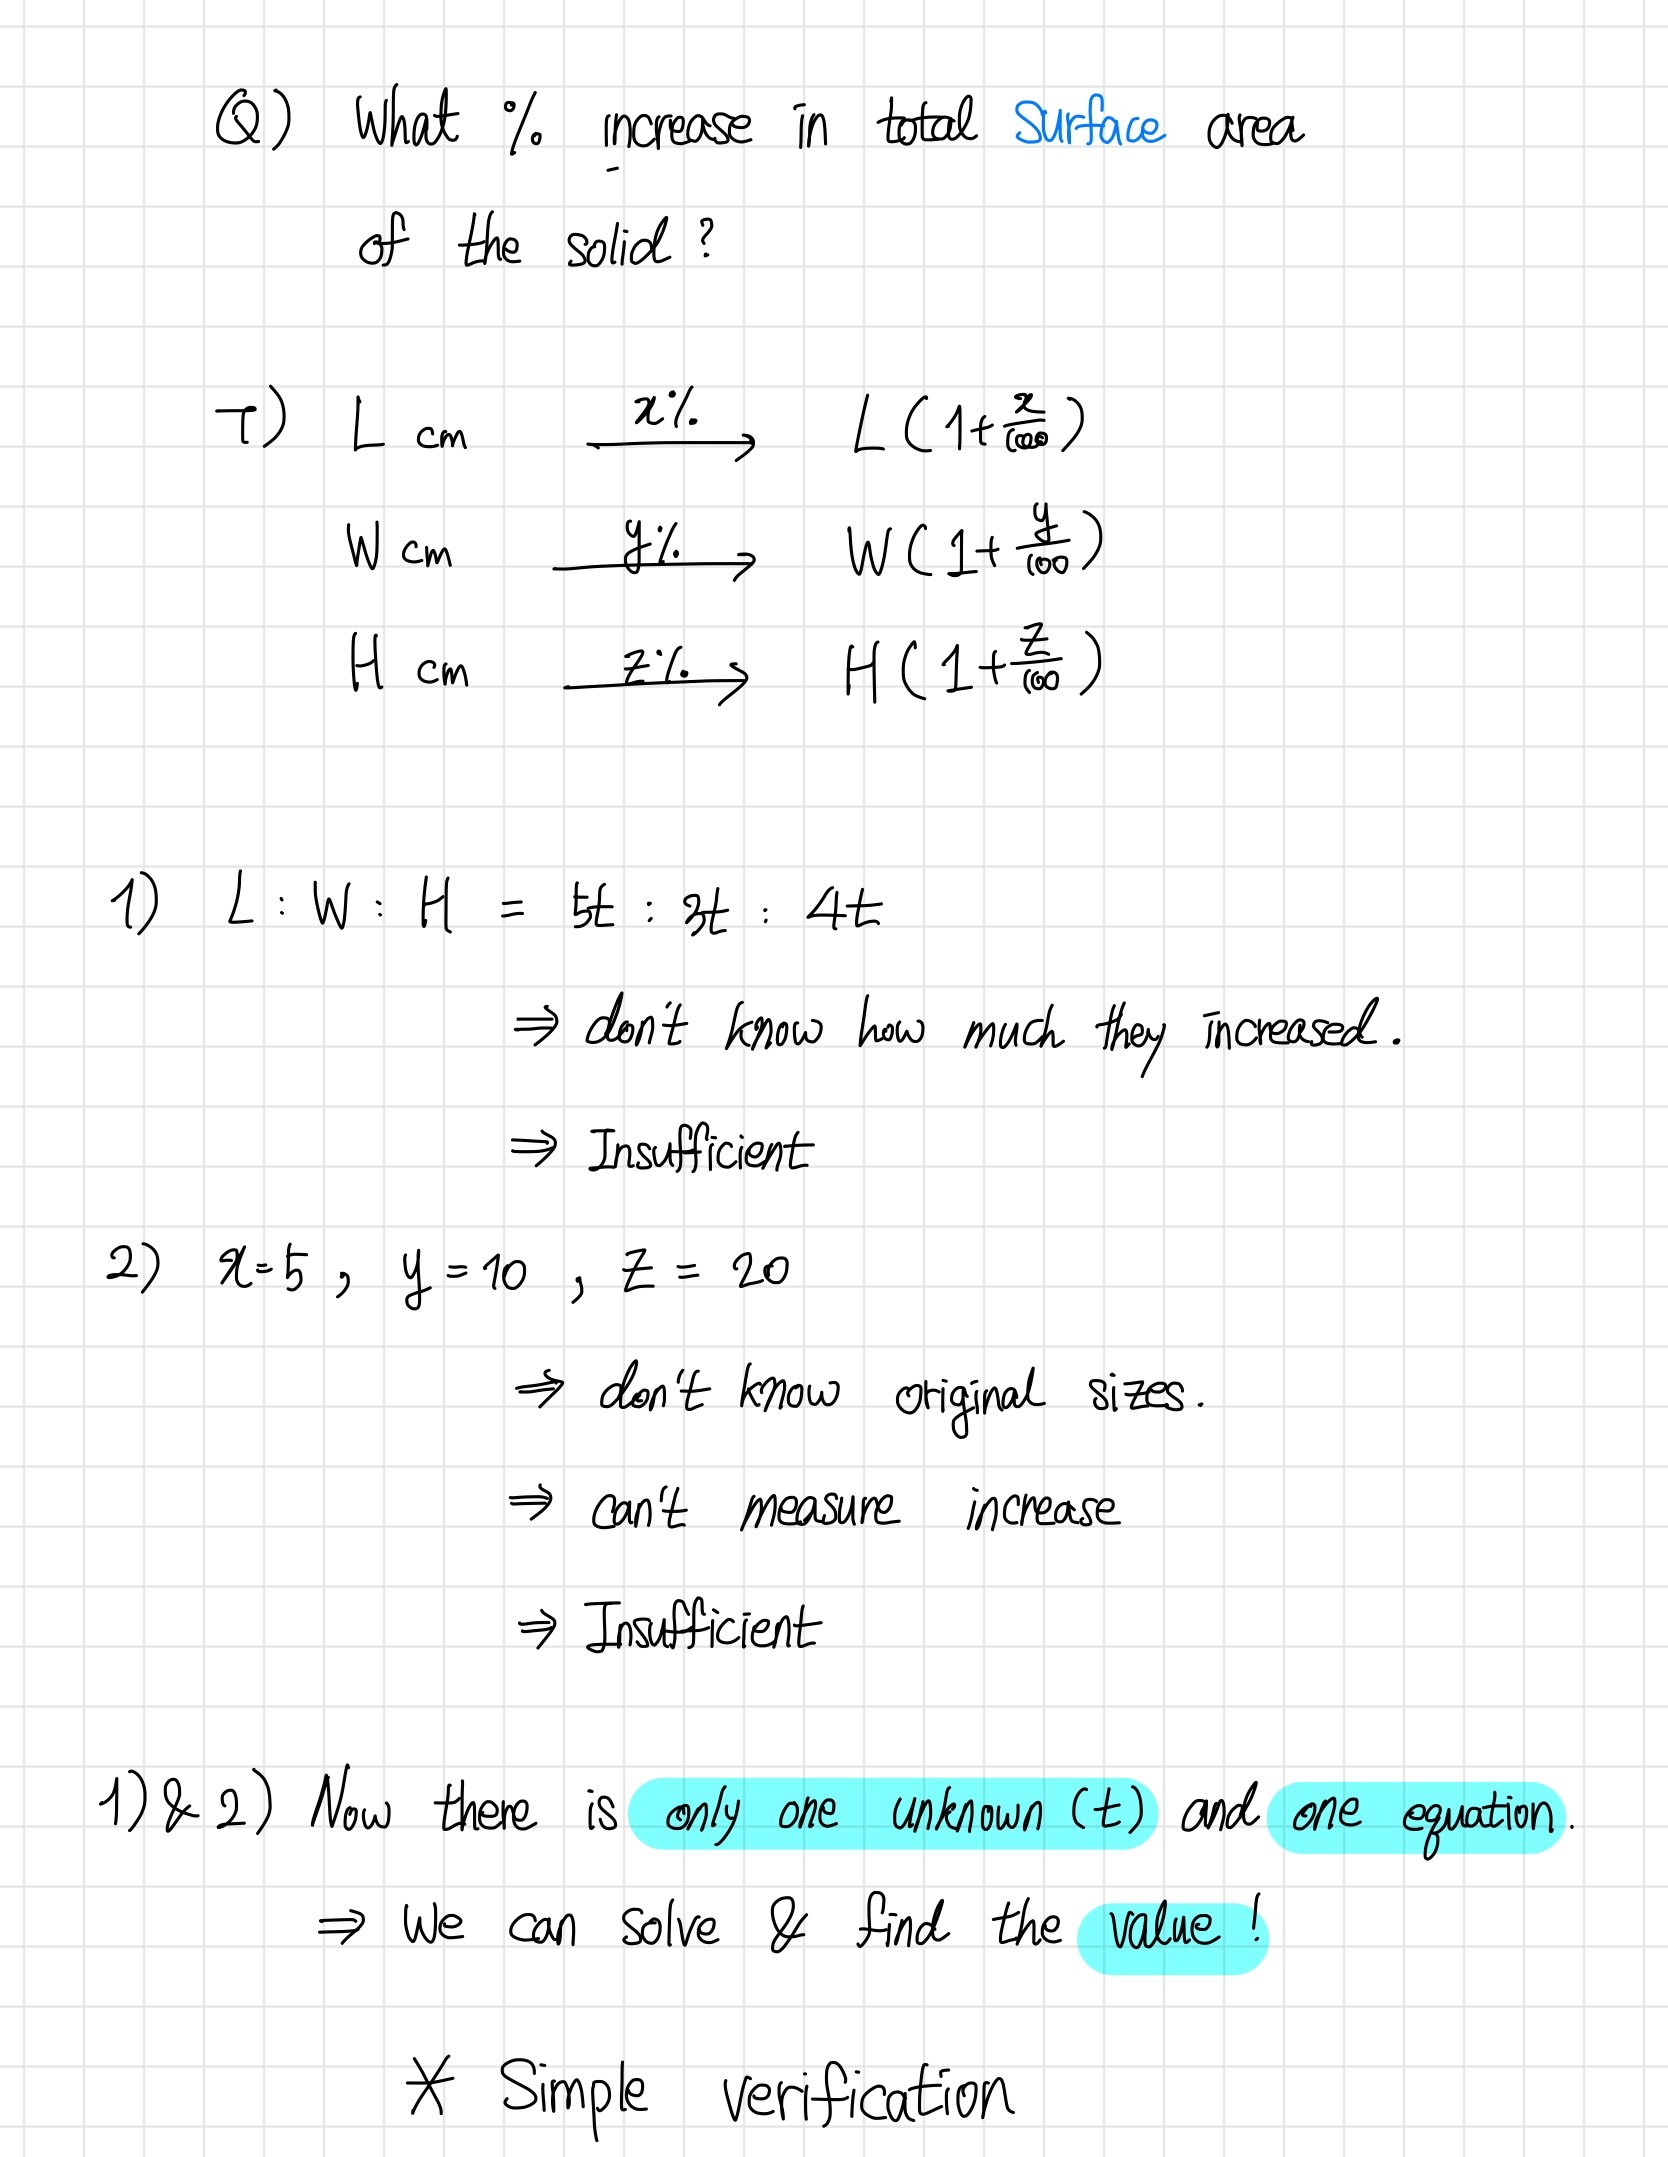 Q) What % increase in total surface area
of the solid?
T) L cm x% → L(1+x/100)
W cm y% → W(1+y/100)
H cm z% → H(1+z/100)
1) L : W : H = 5t : 3t : 4t
⇒ don't know how much they increased.
⇒ Insufficient
2) x=5, y=10, z=20
⇒ don't know original sizes.
⇒ can't measure increase
⇒ Insufficient
1)&2) Now there is only one unknown (t) and one equation.
⇒ We can solve & find the value!
* Simple verification